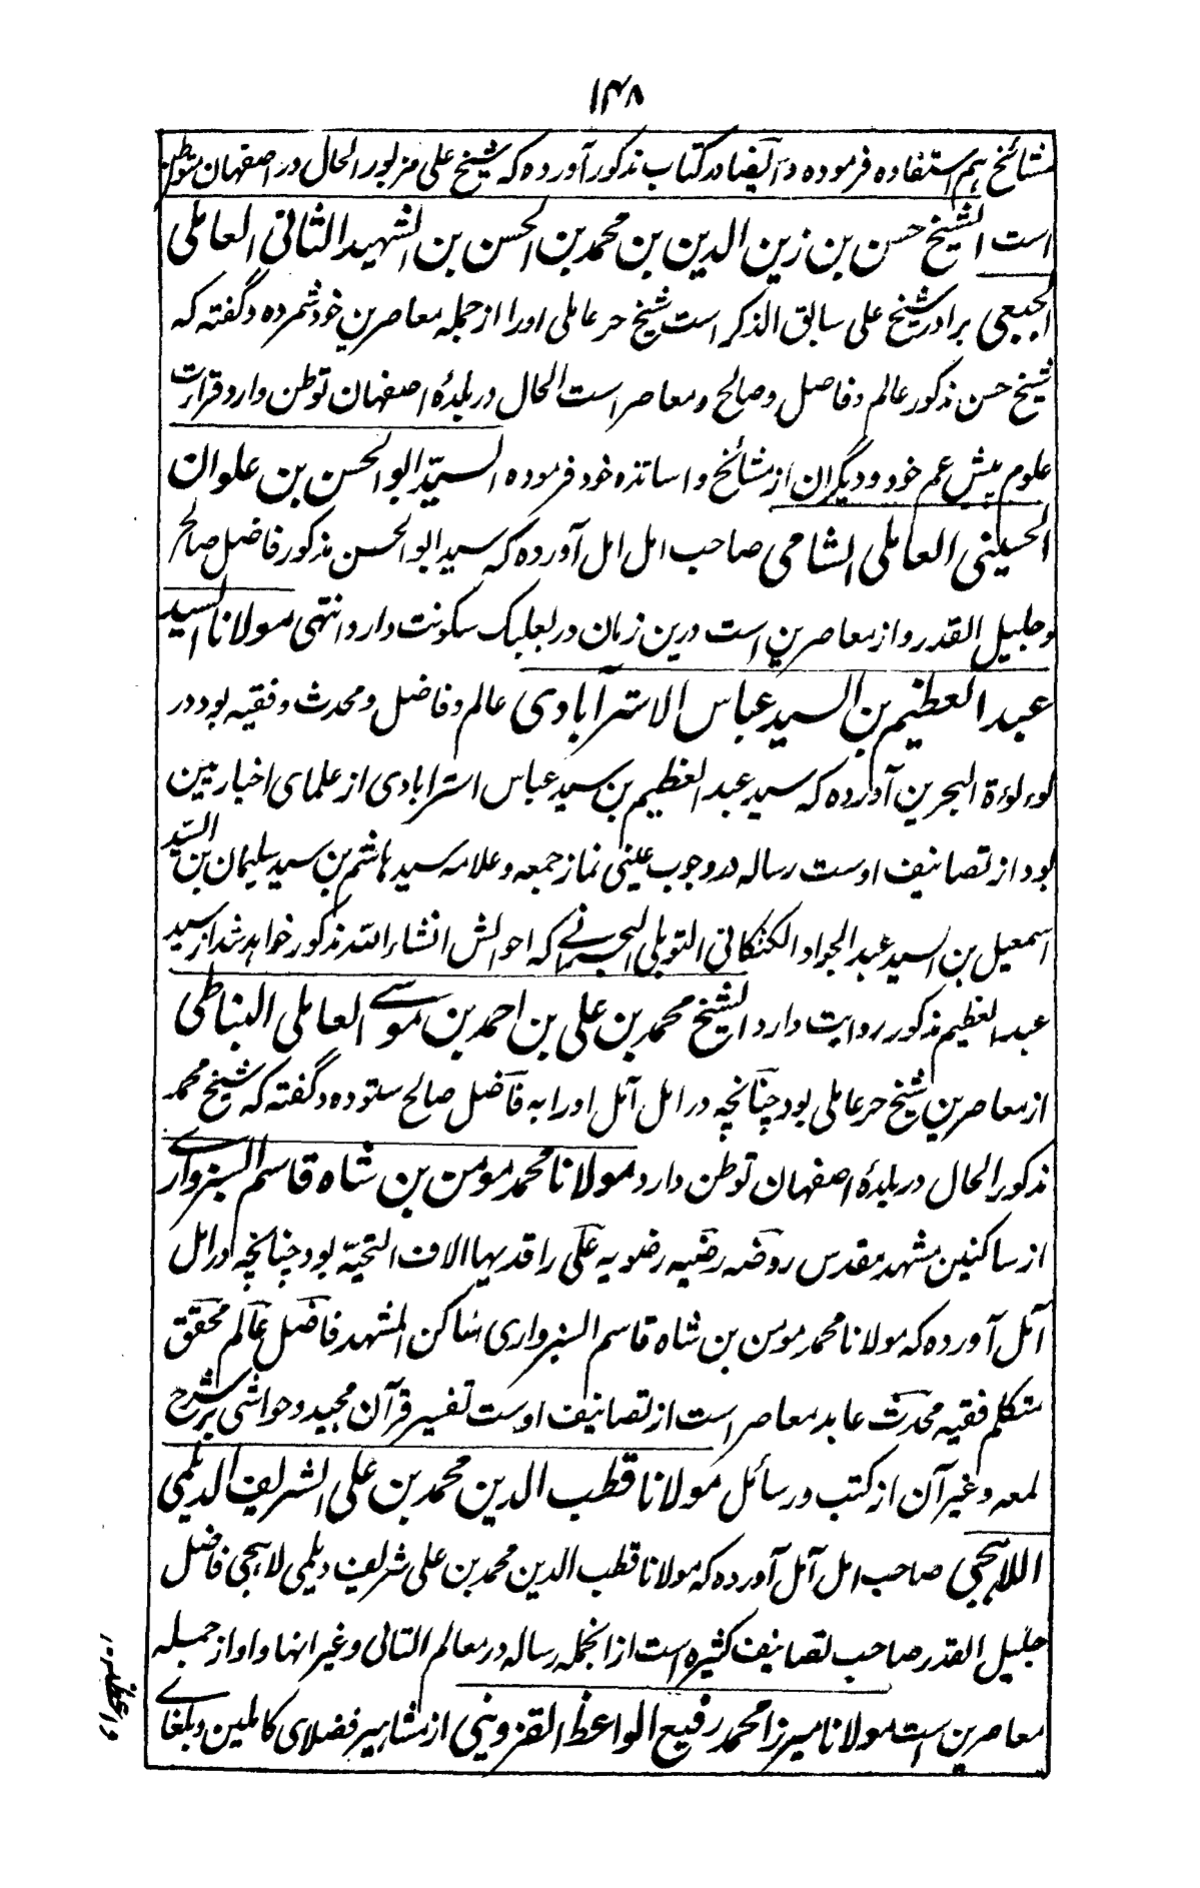 ۱۴۸
مشائخ هم استفاده فرموده و ایضا در کتاب مذکور آورده که شیخ علی مزبور الحال در اصفهان متوطن
است الشیخ حسن بن زین الدین بن محمد بن الحسن بن الشهید الثانی العاملی
الجبعی برادر شیخ علی سابق الذکر است شیخ حر عاملی اورا از جمله معاصرین خود شمرده و گفته که
شیخ حسن مذکور عالم و فاضل و صالح و معاصر است الحال در بلدۀ اصفهان توطن دارد قرارت
علوم پیش عم خود و دیگران از مشائخ و اساتذه خود فرموده السیّد ابو الحسن بن علوان
الحسینی العاملی الشامی صاحب امل امل آورده که سید ابو الحسن مذکور فاضل صالح
و جلیل القدر و از معاصرین است درین زمان در بعلبک سکونت دارد انتهی مولانا السید
عبد العظیم بن السید عباس الاسترآبادی عالم و فاضل و محدث و فقیه بود در
لوءلوءة البحرین آورده که سید عبد العظیم بن سید عباس استرابادی از علمای اخباریین
بود از تصانیف اوست رساله در وجوب عینی نماز جمعه و علامه سید هاشم بن سید سلیمان بن السّید
اسمعیل بن السید عبد الجواد الکتکانی التوبلی البحرانے که احوالش انشاء الله مذکور خواهد شد از سید
عبد العظیم مذکور روایت دارد الشیخ محمد بن علی بن احمد بن موسے العاملی النباطی
از معاصرین شیخ حر عاملی بود چنانچه در امل آمل اورا به فاضل صالح ستوده و گفته که شیخ محمد
مذکور الحال در بلدۀ اصفهان توطن دارد مولانا محمد مومن بن شاه قاسم السبزوارے
از ساکنین مشهد مقدس روضه رضیه رضویه علی راقدیها الاف التحیّة بود چنانچه در امل
آمل آورده که مولانا محمد مومن بن شاه قاسم السبزواری ساکن المشهد فاضل عالم محقق
متکلم فقیه محدث عابد معاصر است از تصانیف اوست تفسیر قرآن مجید و حواشی بر شرح
لمعه و غیر آن از کتب و رسائل مولانا قطب الدین محمد بن علی الشریف الدیلمی
اللاهیجی صاحب امل آمل آورده که مولانا قطب الدین محمد بن علی شریف دیلمی لاهیجی فاضل
جلیل القدر صاحب تصانیف کثیره است از انجمله رساله در معالم الثانی و غیر انها و او از جمله
معاصرین است مولانا میرزا محمد رفیع الواعظ القزوینی از مشاهیر فضلای کاملین و بلغاے